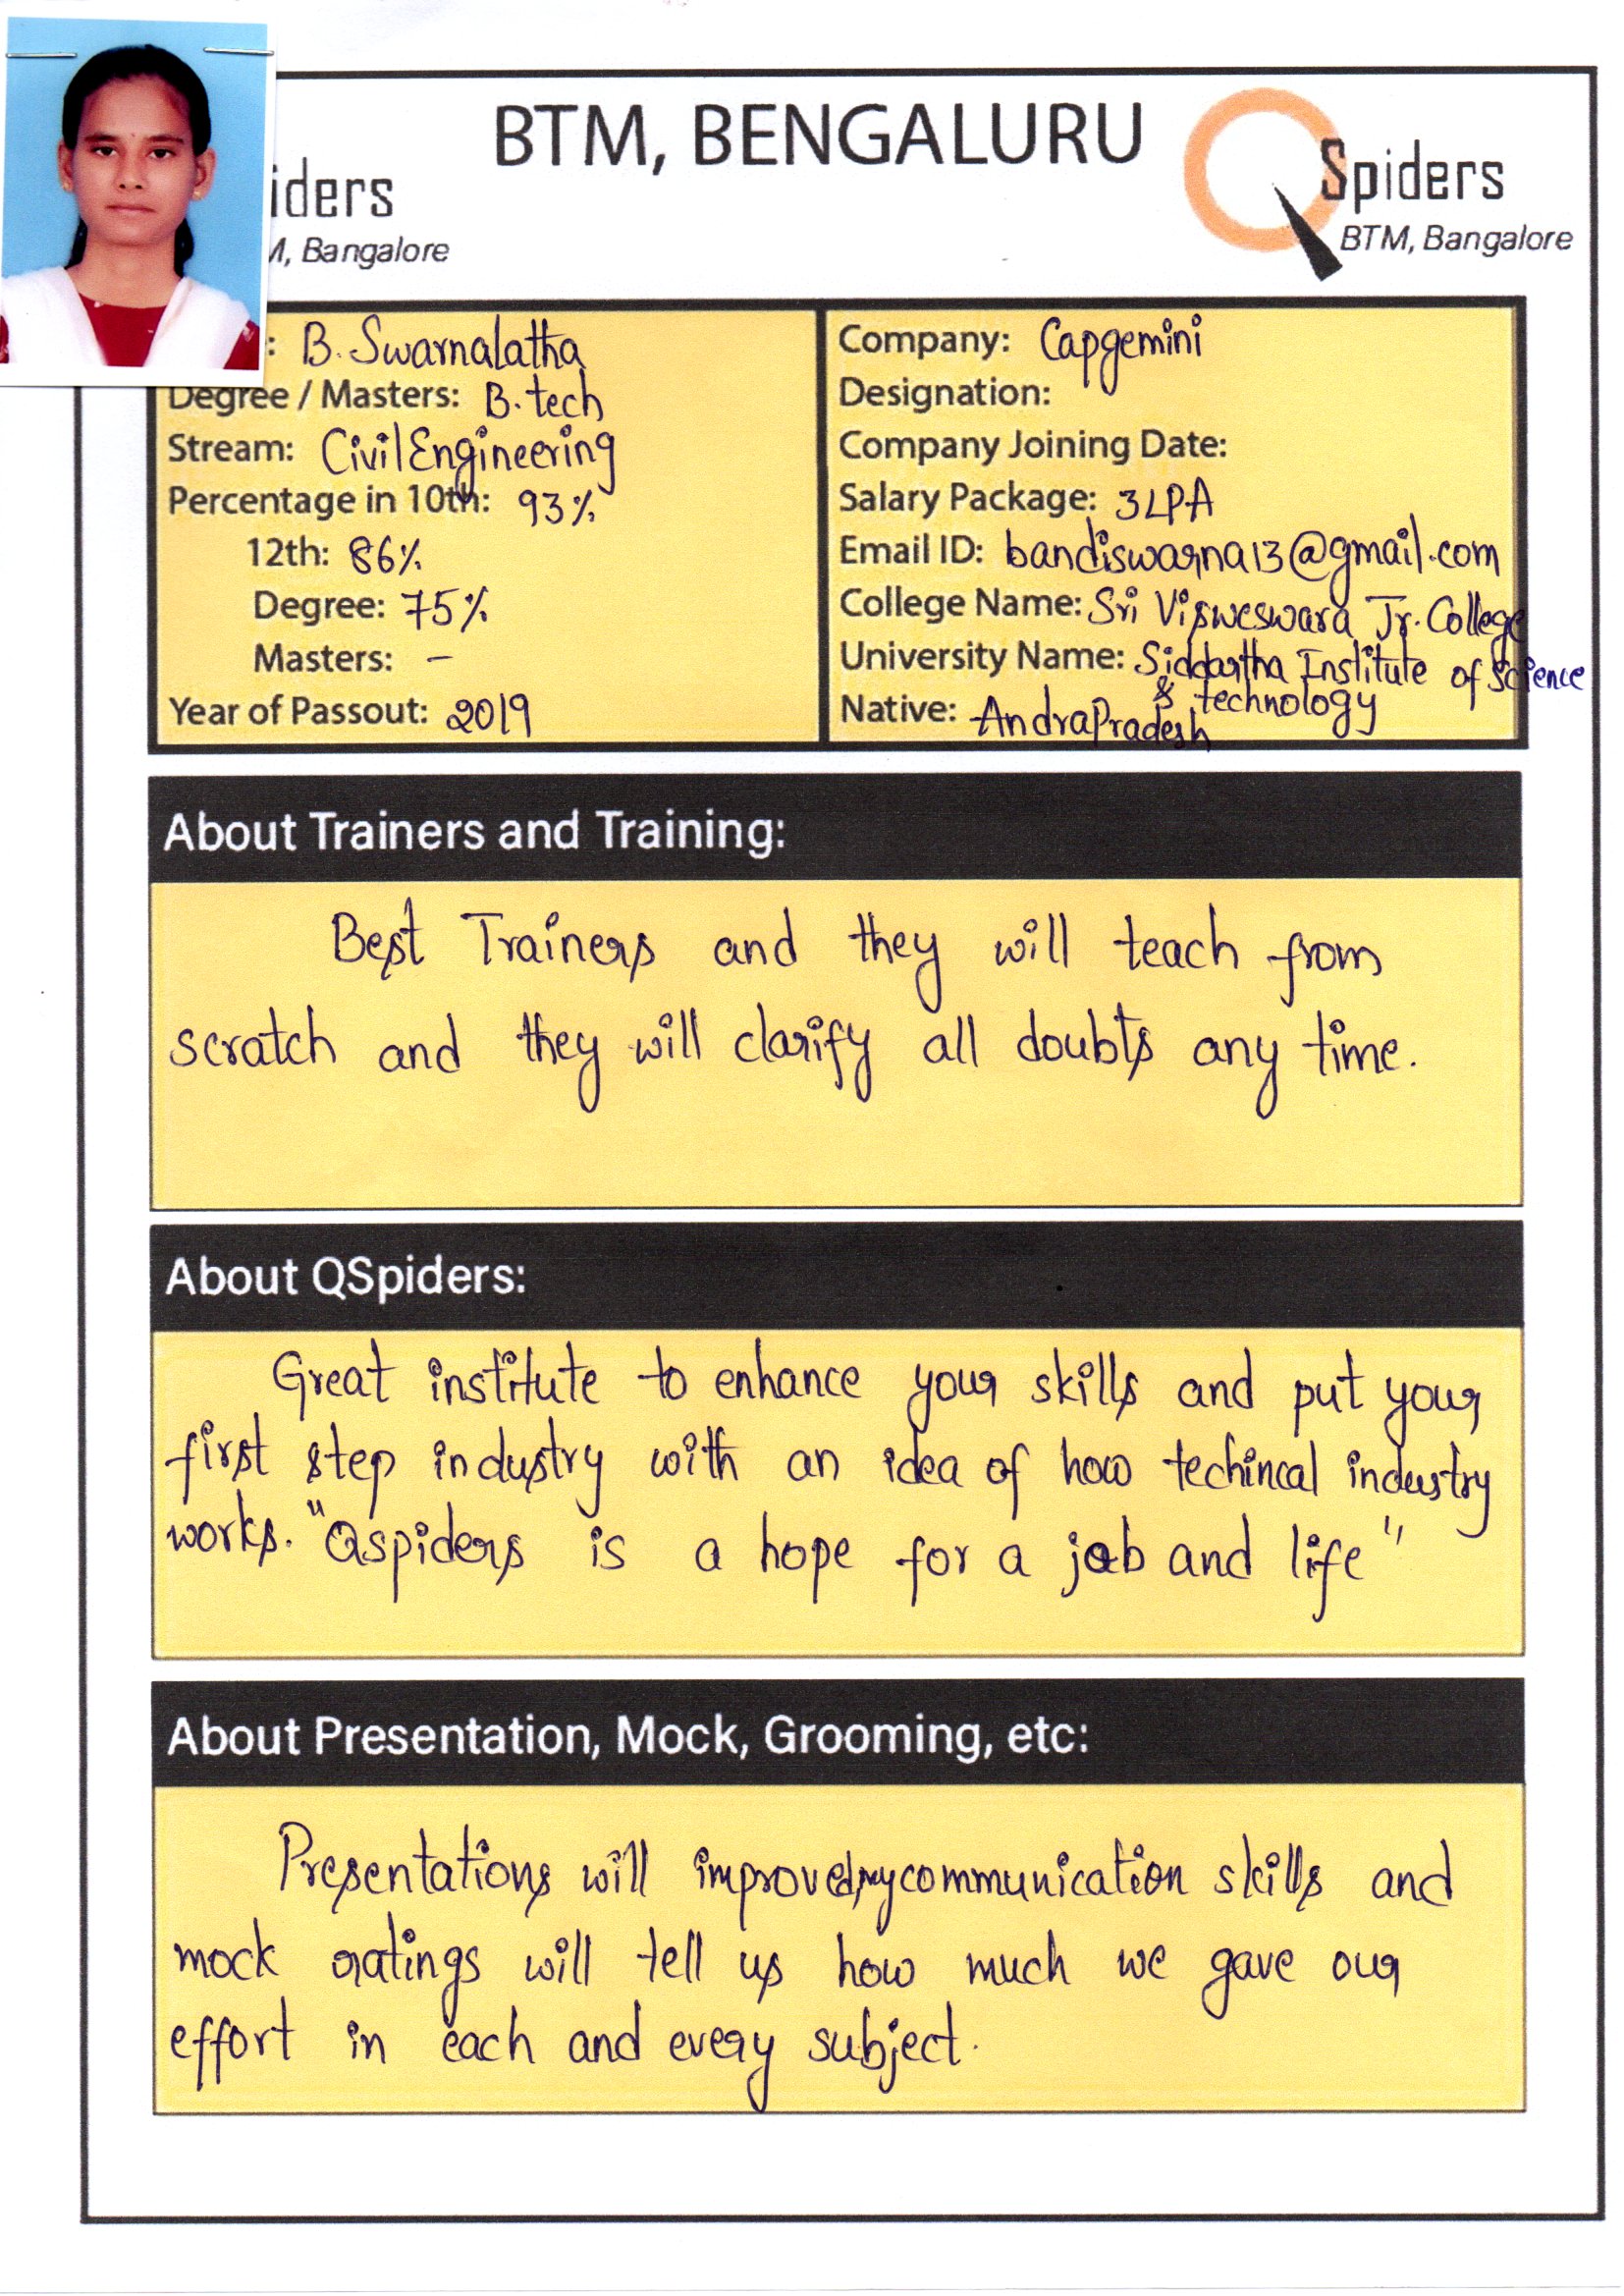 BTM, BENGALURU
iders
M, Bangalore
Spiders
BTM, Bangalore
: B. Swarnalatha
Degree / Masters: B.tech
Stream: Civil Engineering
Percentage in 10th: 93%
12th: 86%
Degree: 75%
Masters: -
Year of Passout: 2019
Company: Capgemini
Designation:
Company Joining Date:
Salary Package: 3LPA
Email ID: bandiswarna13@gmail.com
College Name: Sri Visweswara Jr. College
University Name: Siddartha Institute of Science
& technology
Native: AndraPradesh
About Trainers and Training:
Best Trainers and they will teach from
scratch and they will clarify all doubts any time.
About QSpiders:
Great institute to enhance your skills and put your
first step industry with an idea of how techincal industry
works. "Qspiders is a hope for a job and life"
About Presentation, Mock, Grooming, etc:
Presentations will improved my communication skills and
mock ratings will tell us how much we gave our
effort in each and every subject.